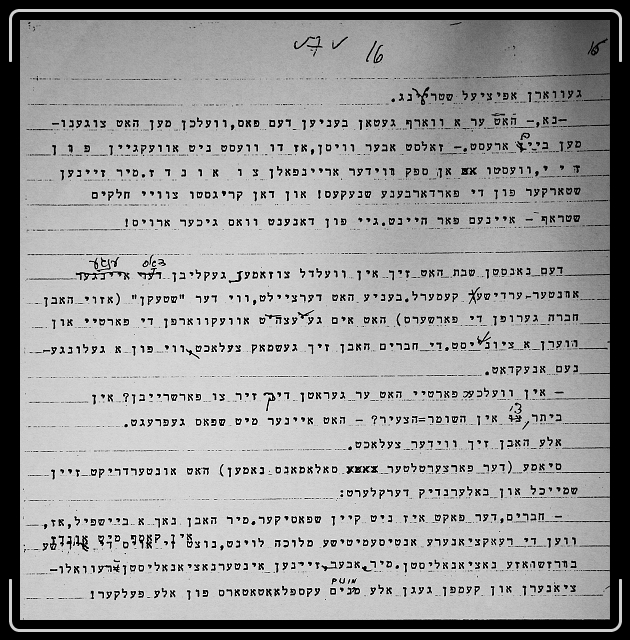 16
געווארן אפיציעל שטרענג.
—נא,— האט ער א ווארף געטאן בעניען דעם פאס,וועלכן מען האט צוגענו—
מען ביים ארעסט.— זאלסט אבער וויסן,אז דו וועסט ניט אוועקגיין פ ו ן
ז י י,וועסטו אן ספק ווידער אריינפאלן צ ו א ו נ ד ז.מיר זיינען
שטארקער פון די פארדארבענע שנעקעס! און דאן קריגסטו צוויי חלקים
שטראף — איינעם פאר היינט.גיי פון דאנענט וואס גיכער ארויס!
דעם נאנסטן שבת האט זיך אין וועלדל צוזאמען געקליבן דאס ענגע
אונטער—ערדישע קעמערל.בעניע האט דערציילט,ווי דער "שטעקן" (אזוי האבן
חברה גערופן די פארשערס) האט אים געעצהט אוועקווארפן די פארטיי און
ווערן א ציוניסט.די חברים האבן זיך געשמאק צעלאכט,ווי פון א געלונגע—
נעם אנעקדאט.
— אין וועלכע פארטיי האט ער געראטן דיר זיך צו פארשרייבן? אין
ביתר צי אין השומר=הצעיר? — האט איינער מיט שפאס געפרעגט.
אלע האבן זיך ווידער צעלאכט.
סיאמע (דער פארצערטלטער סאלאמאנס נאמען) האט אונטערדריקט זיין
שמייכל און באלערנדיק דערקלערט:
— חברים,דער פאקט איז ניט קיין שפאסיקער.מיר האבן נאך א ביישפיל,אז,
אין קאמף מיט אונדז
ווען די רעאקציאנערע אנטיסעמיטישע מלוכה לוינט,נוצט זי אויס די יידישע
בורזשואזע נאציאנאליסטן.מיר,אבער,זיינען אינטערנאציאנאליסטן—רעוואלו—
ציאנערן און קעמפן געגן אלע מינים עקספלאאטאטארס פון אלע פעלקער!